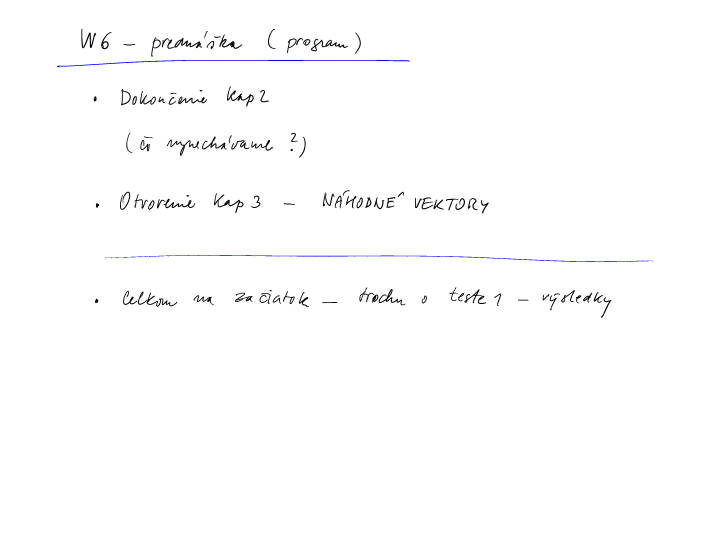 W6 - prednáška (program)
• Dokončenie Kap 2
(čo vynechávame ?)
• Otvorenie Kap 3 - NÁHODNÉ VEKTORY
• Celkom na začiatok - trochu o teste 1 - výsledky